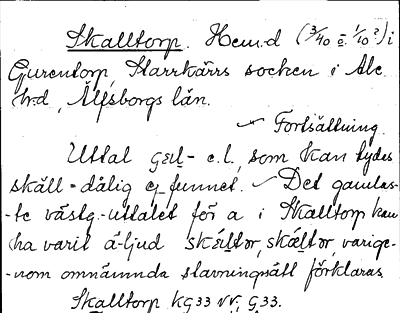 Skalltorp. Hemd (3/40 o. 1/10?) i
Gurentorp, Starrkärrs socken i Ale
hrd, Älfsborgs län.
Fortsättning.
Uttal e.l., som kan tydas
skäll = dålig ej funnet. Det gamlas-
-te västg. uttalet för a i Skalltorp kan
ha varit ä-ljud varige-
-nom omnämnda stavningsätt förklaras
Skalltorp KG33 NV, G33.